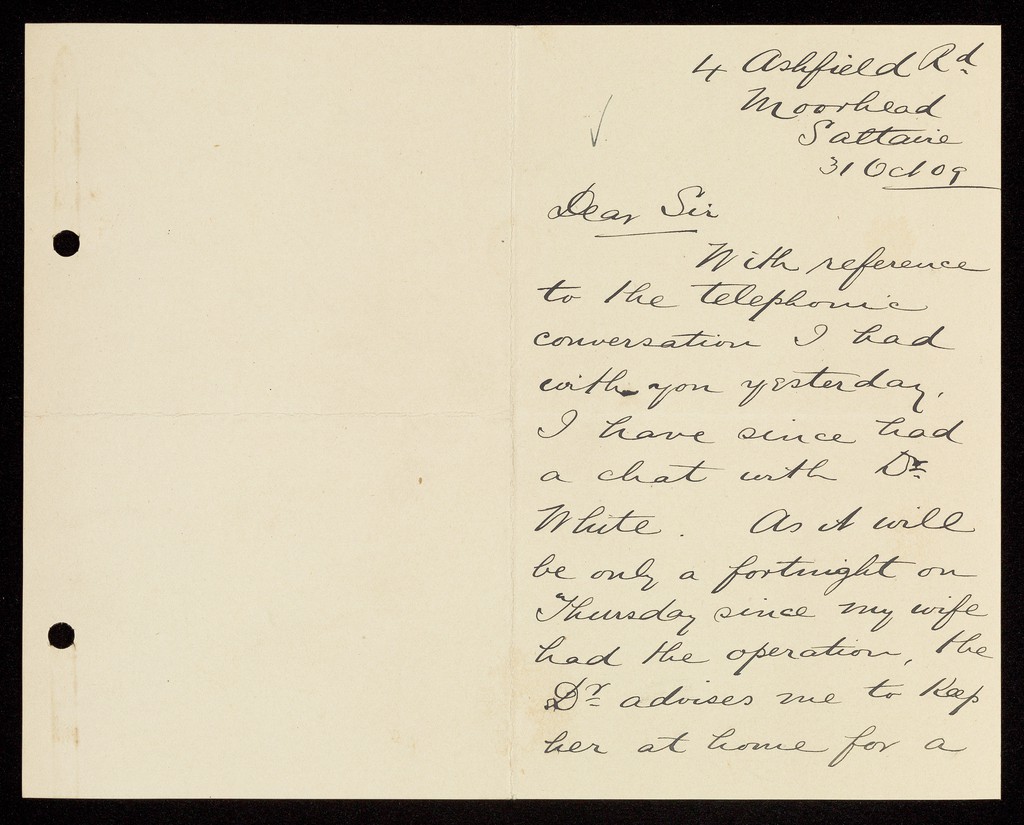 4 Ashfield Rd
Moorhead
Saltaire
31 Oct 09
Dear Sir
With reference
to the telephonic
conversation I had
with you yesterday,
I have since had
a chat with Dr
White. As it will
be only a fortnight on
Thursday since my wife
had the operation, the
Dr advises me to keep
her at home for a